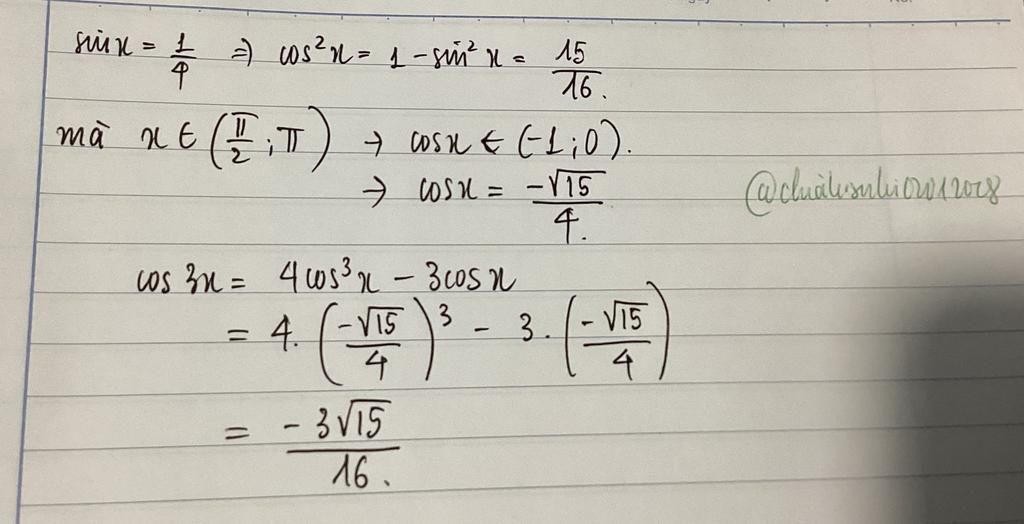 sin x = 1/4 ⇒ cos²x = 1 - sin²x = 15/16.
mà x ∈ (π/2 ; π) → cosx ∈ (-1 ; 0).
→ cosx = -√15/4.
cos 3x = 4cos³x - 3cos x
= 4. (-√15/4)³ - 3. (-√15/4)
= -3√15/16.